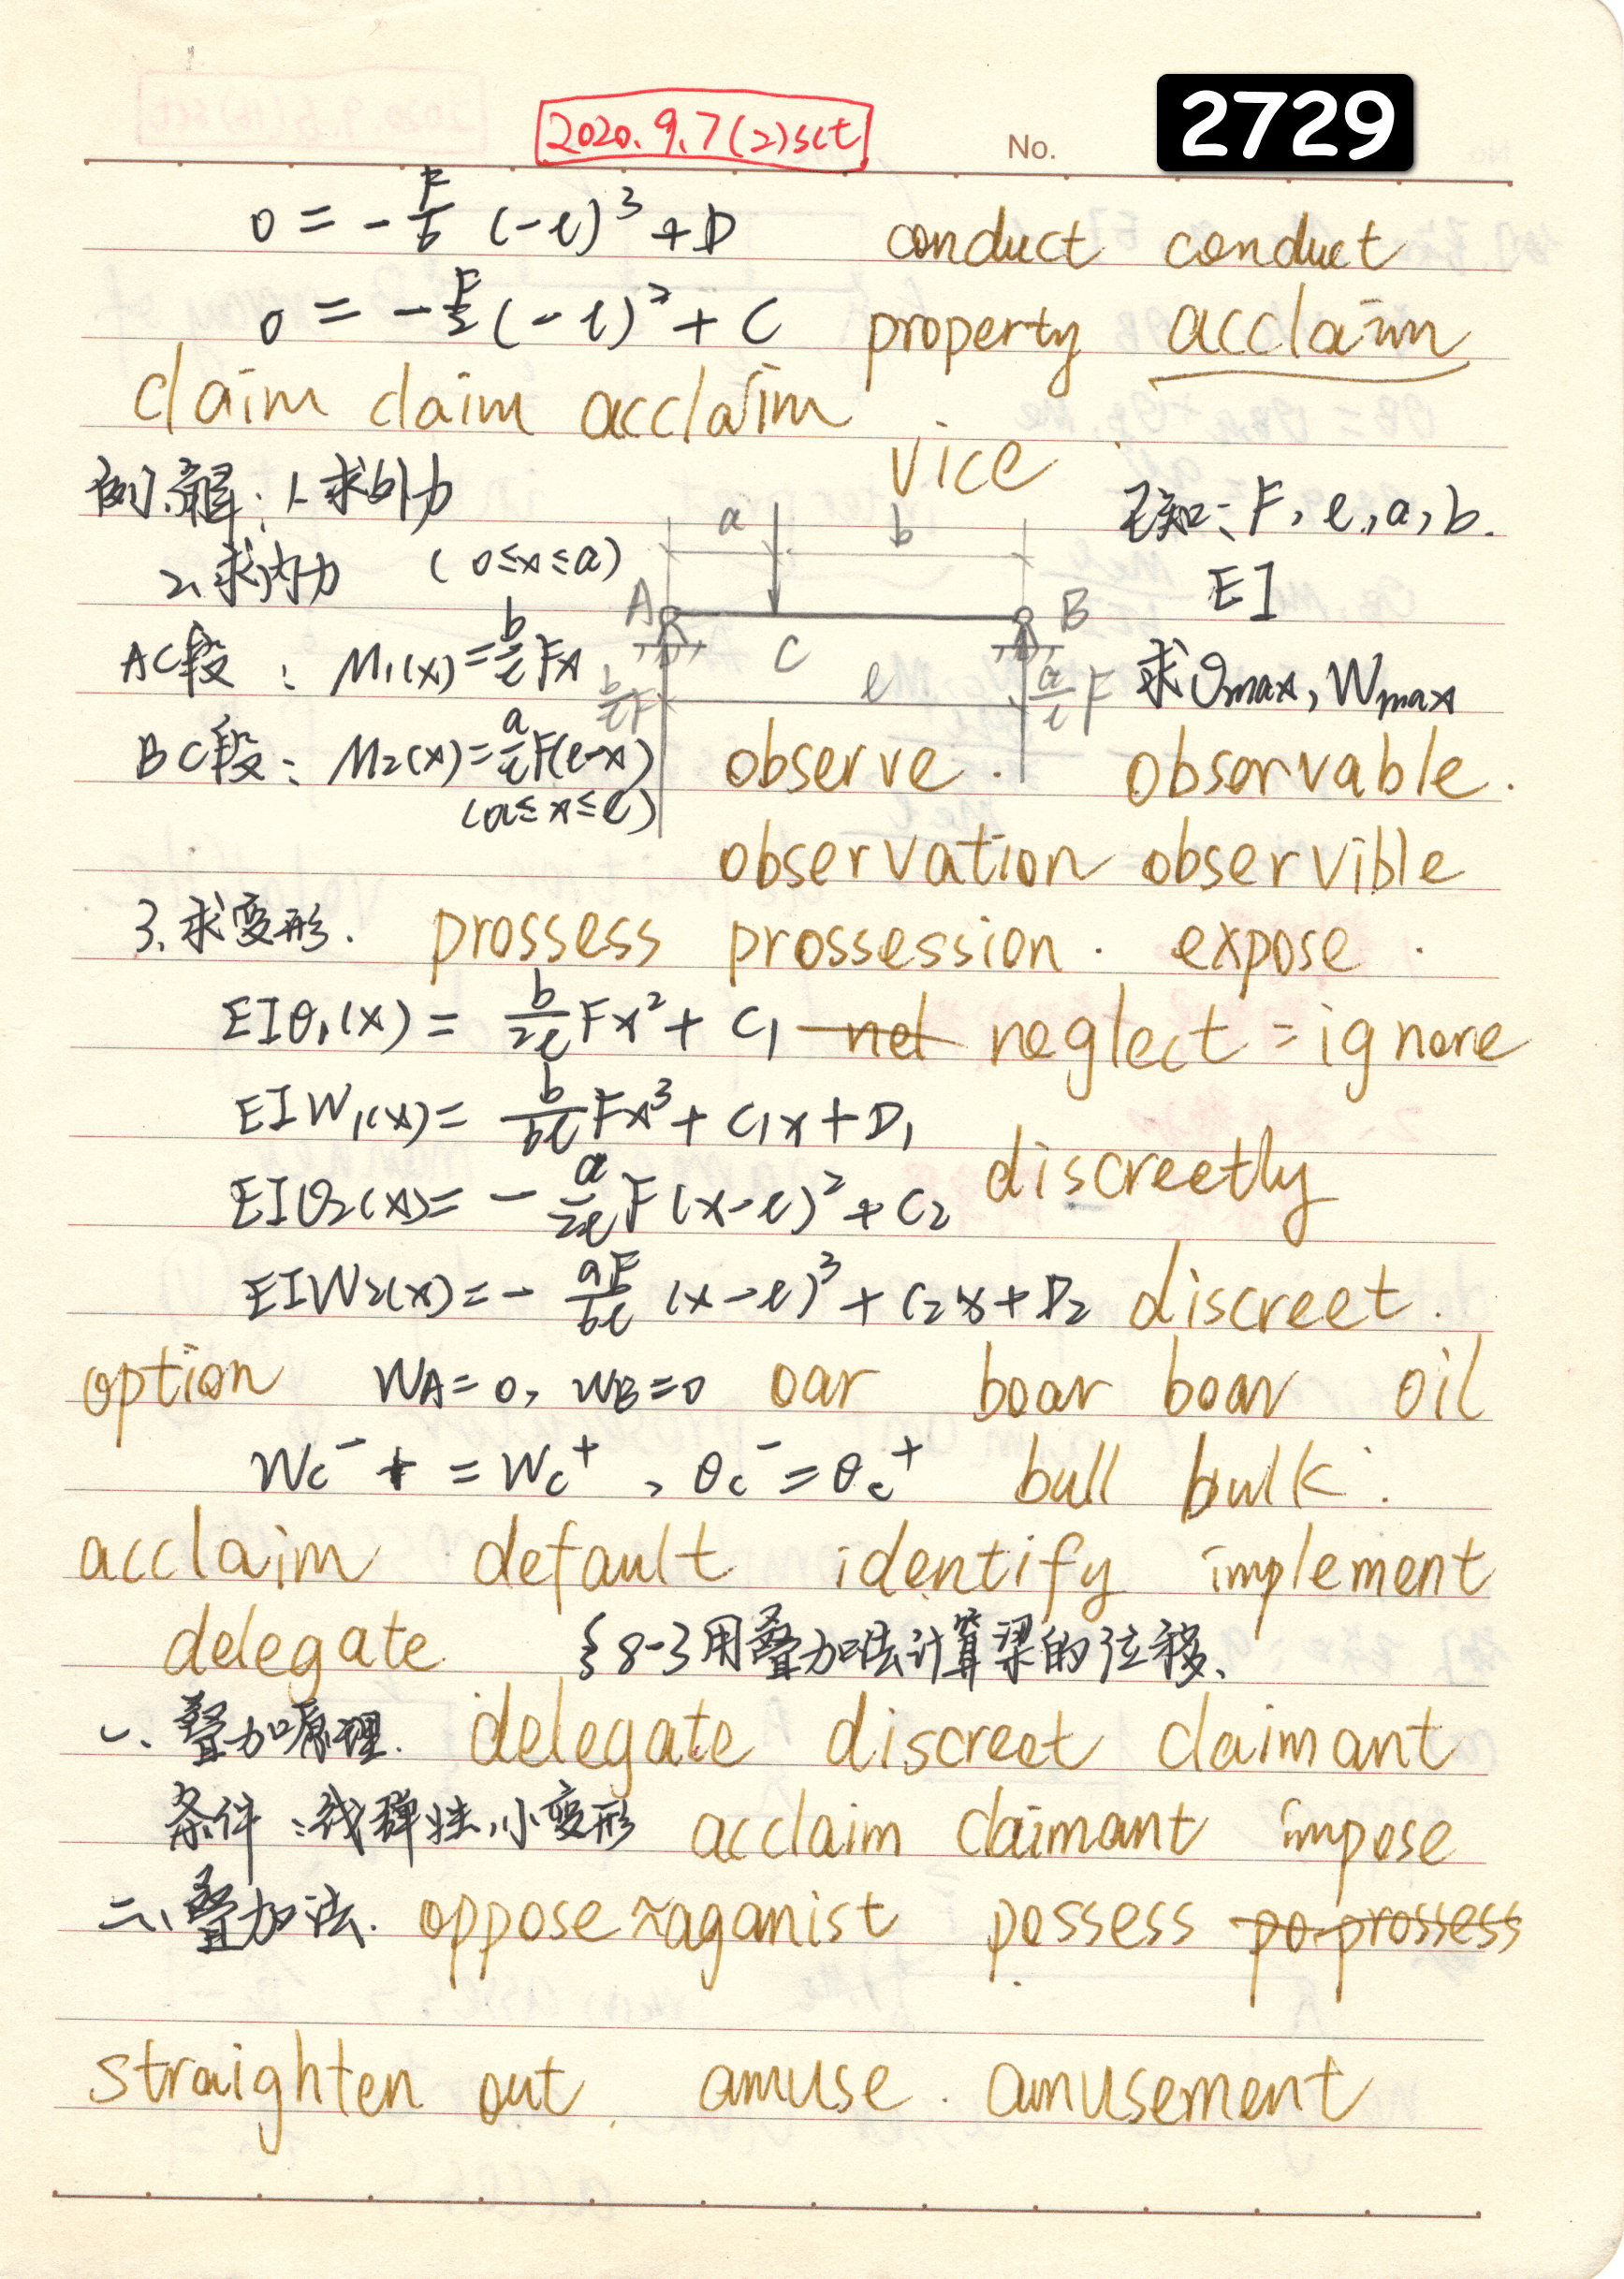 2020.9.7(2)sct No. 2729
0 = -F/6 (-l)³ + D conduct conduct
0 = -F/2 (-l)² + C property acclaim
claim claim acclaim
vice
例.解: 1.求外力 a b 已知: F, l, a, b.
2.求内力 (0≤x≤a) A B EI
AC段: M₁(x)=b/l Fx b/l F C l a/l F 求θmax, Wmax
BC段: M₂(x)=a/l F(l-x) observe. observable.
(a≤x≤l)
observation observible
3.求变形. prossess prossession. expose.
EIθ₁(x) = b/2l Fx² + C₁ net neglect = ignore
EIW₁(x) = b/6l Fx³ + C₁x + D₁
EIθ₂(x) = - a/2l F(x-l)² + C₂ discreetly
EIW₂(x) = - aF/6l (x-l)³ + C₂x + D₂ discreet.
option WA=0, WB=0 oar boar boar oil
Wc⁻ + = Wc⁺, θc⁻ = θc⁺ bull bulk.
acclaim default identify implement
delegate §8-3用叠加法计算梁的位移.
一、叠加原理. delegate discreet claimant
条件:线弹性,小变形 acclaim claimant impose
二、叠加法. oppose ≈ aganist possess po-prossess
straighten out. amuse. amusement